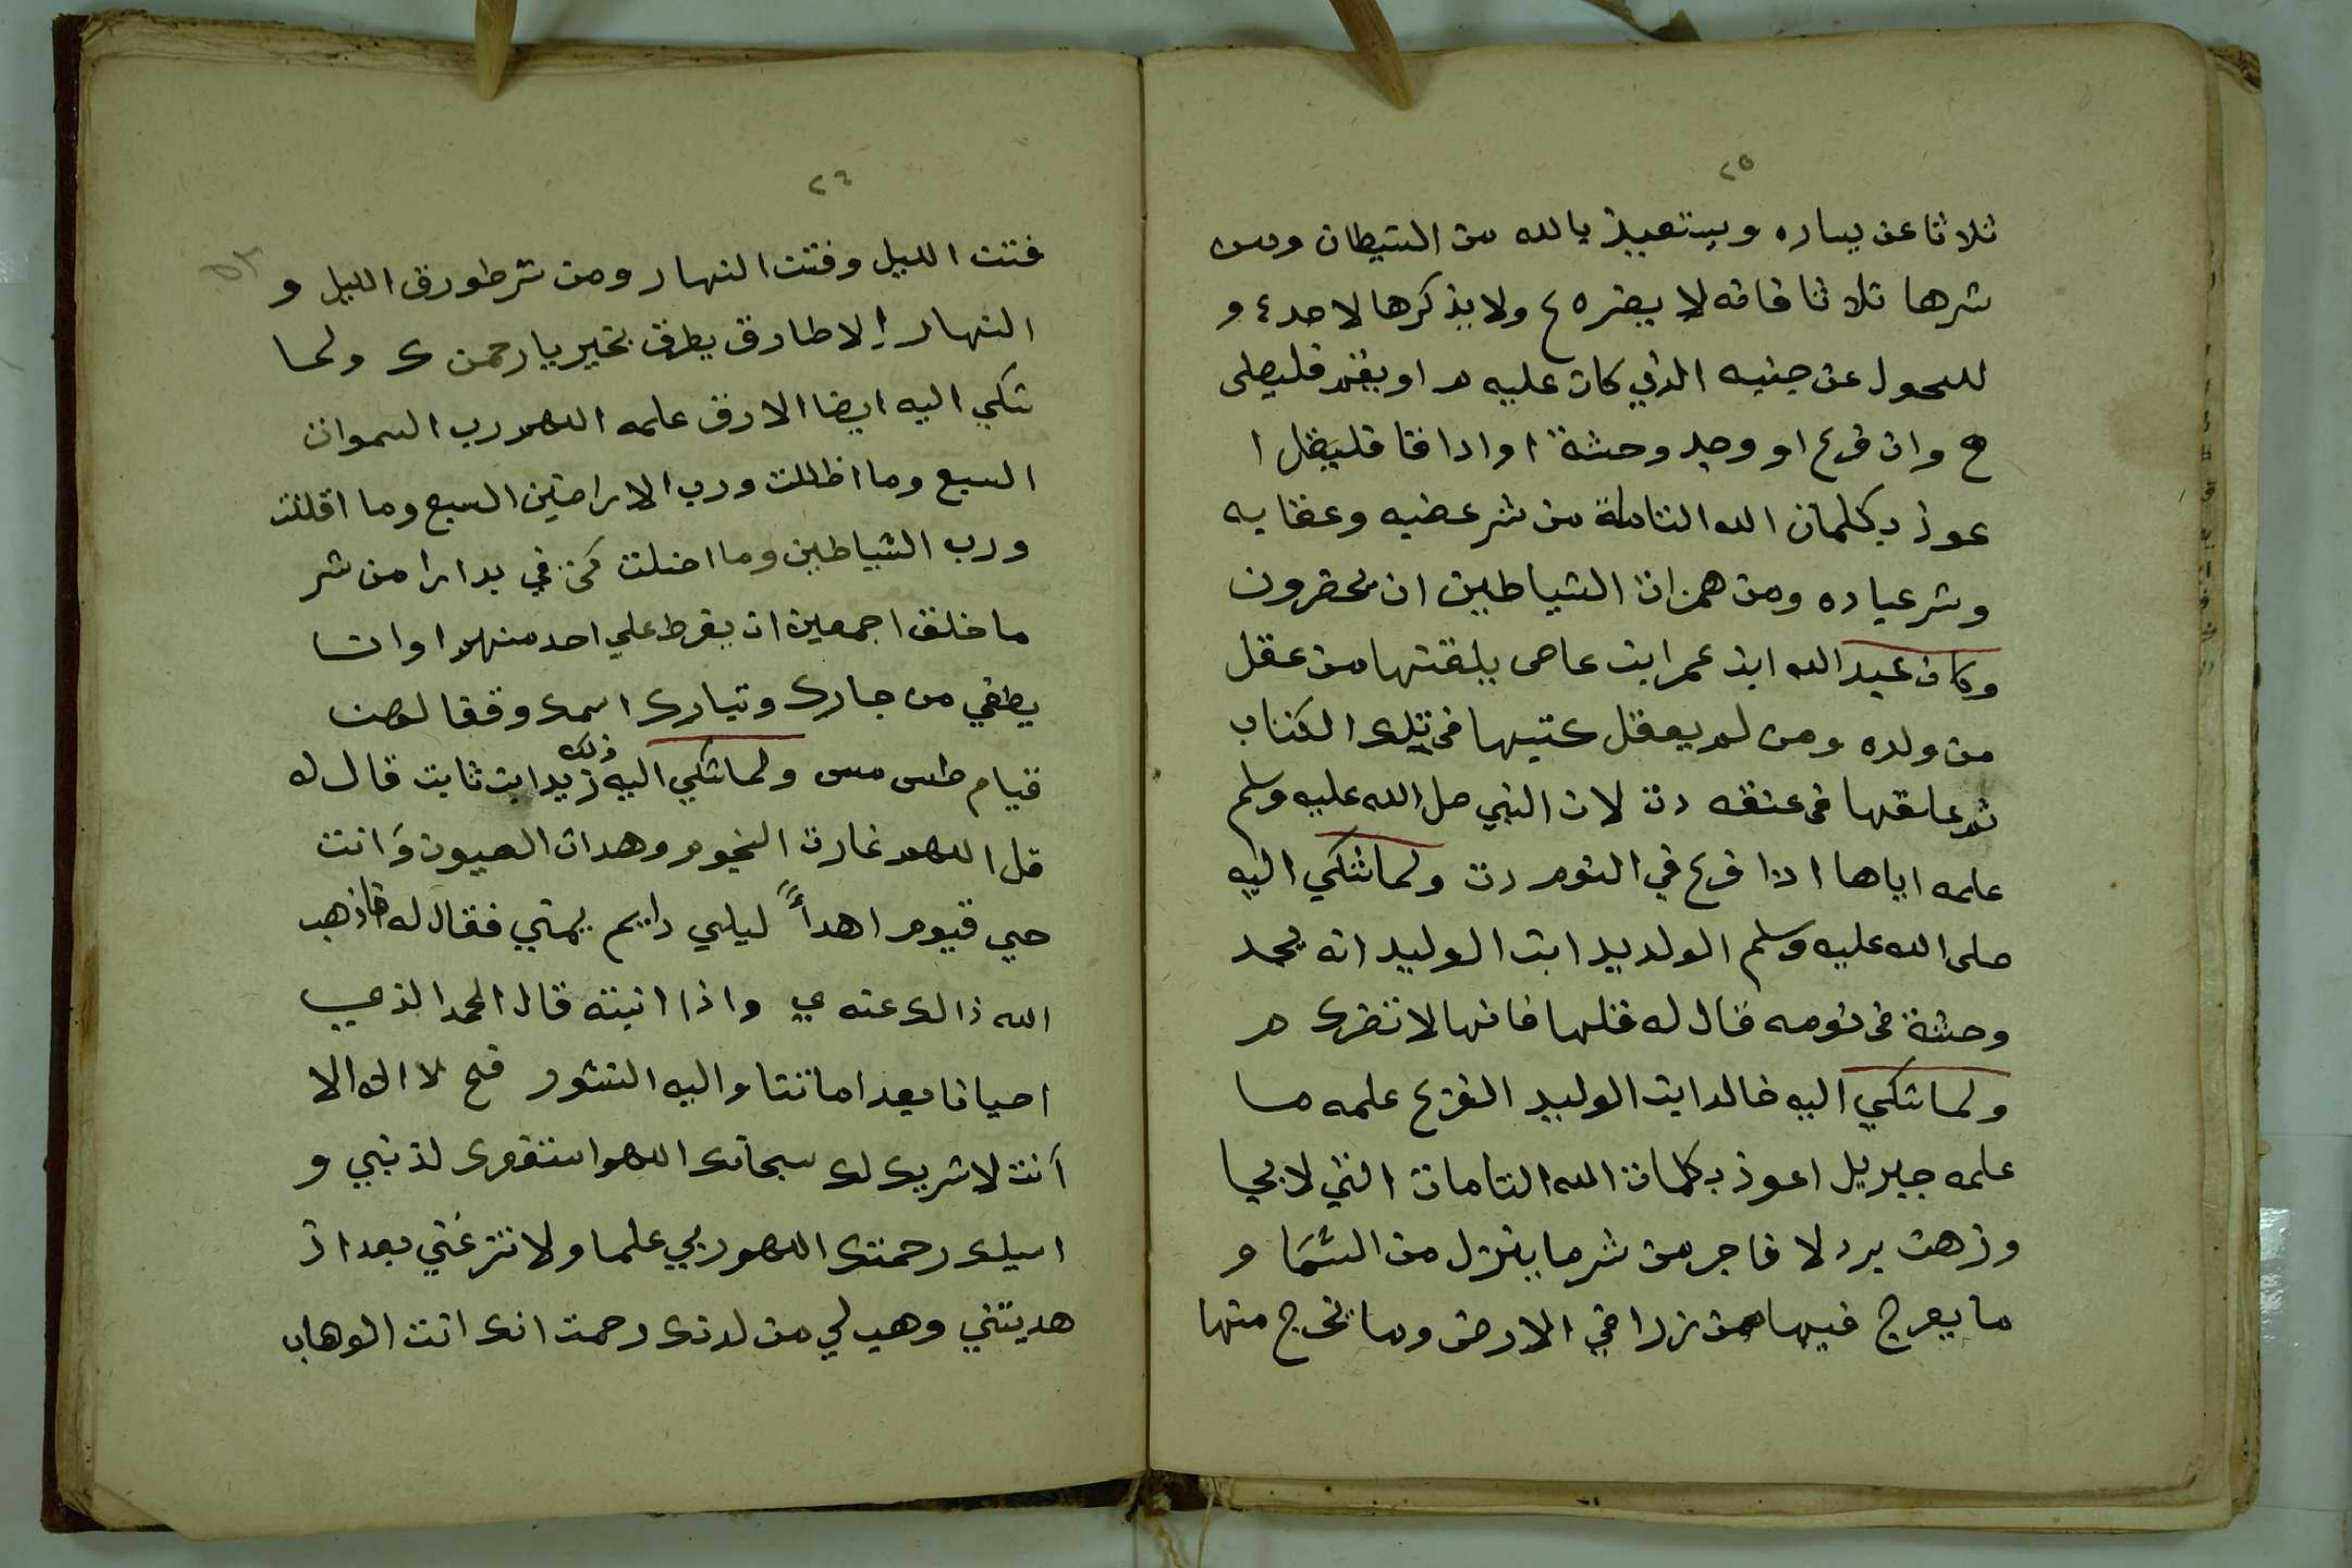 ٢٥
ثلاثا عن يساره ويستعيذ بالله من الشيطان ومن
شرها ثلاثا فانه لا يضره ع ولا يذكرها لاحد ع و
لليحول عن جنبه الذي كان عليه م او يقم فليصلى
ح وان فزع او وجد وحشة او ارقا فليقل ا
عوذ بكلمات الله التاملة من شر غضبه وعقابه
وشر عباده ومن همزات الشياطين ان يحضرون
وكان عبد الله ابن عمر ابن عاص يلقنها من عقل
من ولده ومن لم يعقل كتبها في تلك الكتاب
ثم علقها في عنقه دت لان النبي صل الله عليه وسلم
علمه اياها اذا فزع في النوم دت ولما شكي اليه
صلى الله عليه وسلم الولديد ابن الوليد انه يجد
وحشة في نومه قال له قلها فانها لا تضرك م
ولما شكي اليه خالد ابن الوليد الفزع علمه ما
علمه جبريل اعوذ بكلمات الله التامات التي لا يجا
وزهن بر ولا فاجر من شر ما ينزل من السما و
ما يعرج فيها من زرا في الارض وما يخرج منها
٢٦
فتنت الليل وفتنت النهار ومن شر طورق الليل و
النهار إلا طارق يطرق بخير يا رحمن ك ولما
شكي اليه ايضا الارق علمه اللهم رب السموات
السبع وما اظللت ورب الاراضين السبع وما اقللت
ورب الشياطين وما اضلت كن في بدارا من شر
ما خلق اجمعين ان يفرط علي احد منهم او ان
يطغي من جارك وتبارك اسمك وفقا لهن
قيام طس مس ولما شكي اليه ذلك زيد ابن ثابت قال له
قل اللهم غارت النجوم وهدات العيون وَانت
حي قيوم اهدأ ليلي دايم يمتي فقال له فاذهب
الله ذالك عنه ي واذا انبته قال الحمد الذي
احيانا بعد اماتنتا واليه النشور فح لا اله الا
أنت لا شريك لك سبحانك اللهم استغفرك لذنبي و
اسيلك رحمتك اللهم ربي علما ولا تنزغني بعد اذ
هديتني وهب لي من لدنك رحمت انك انت الوهاب